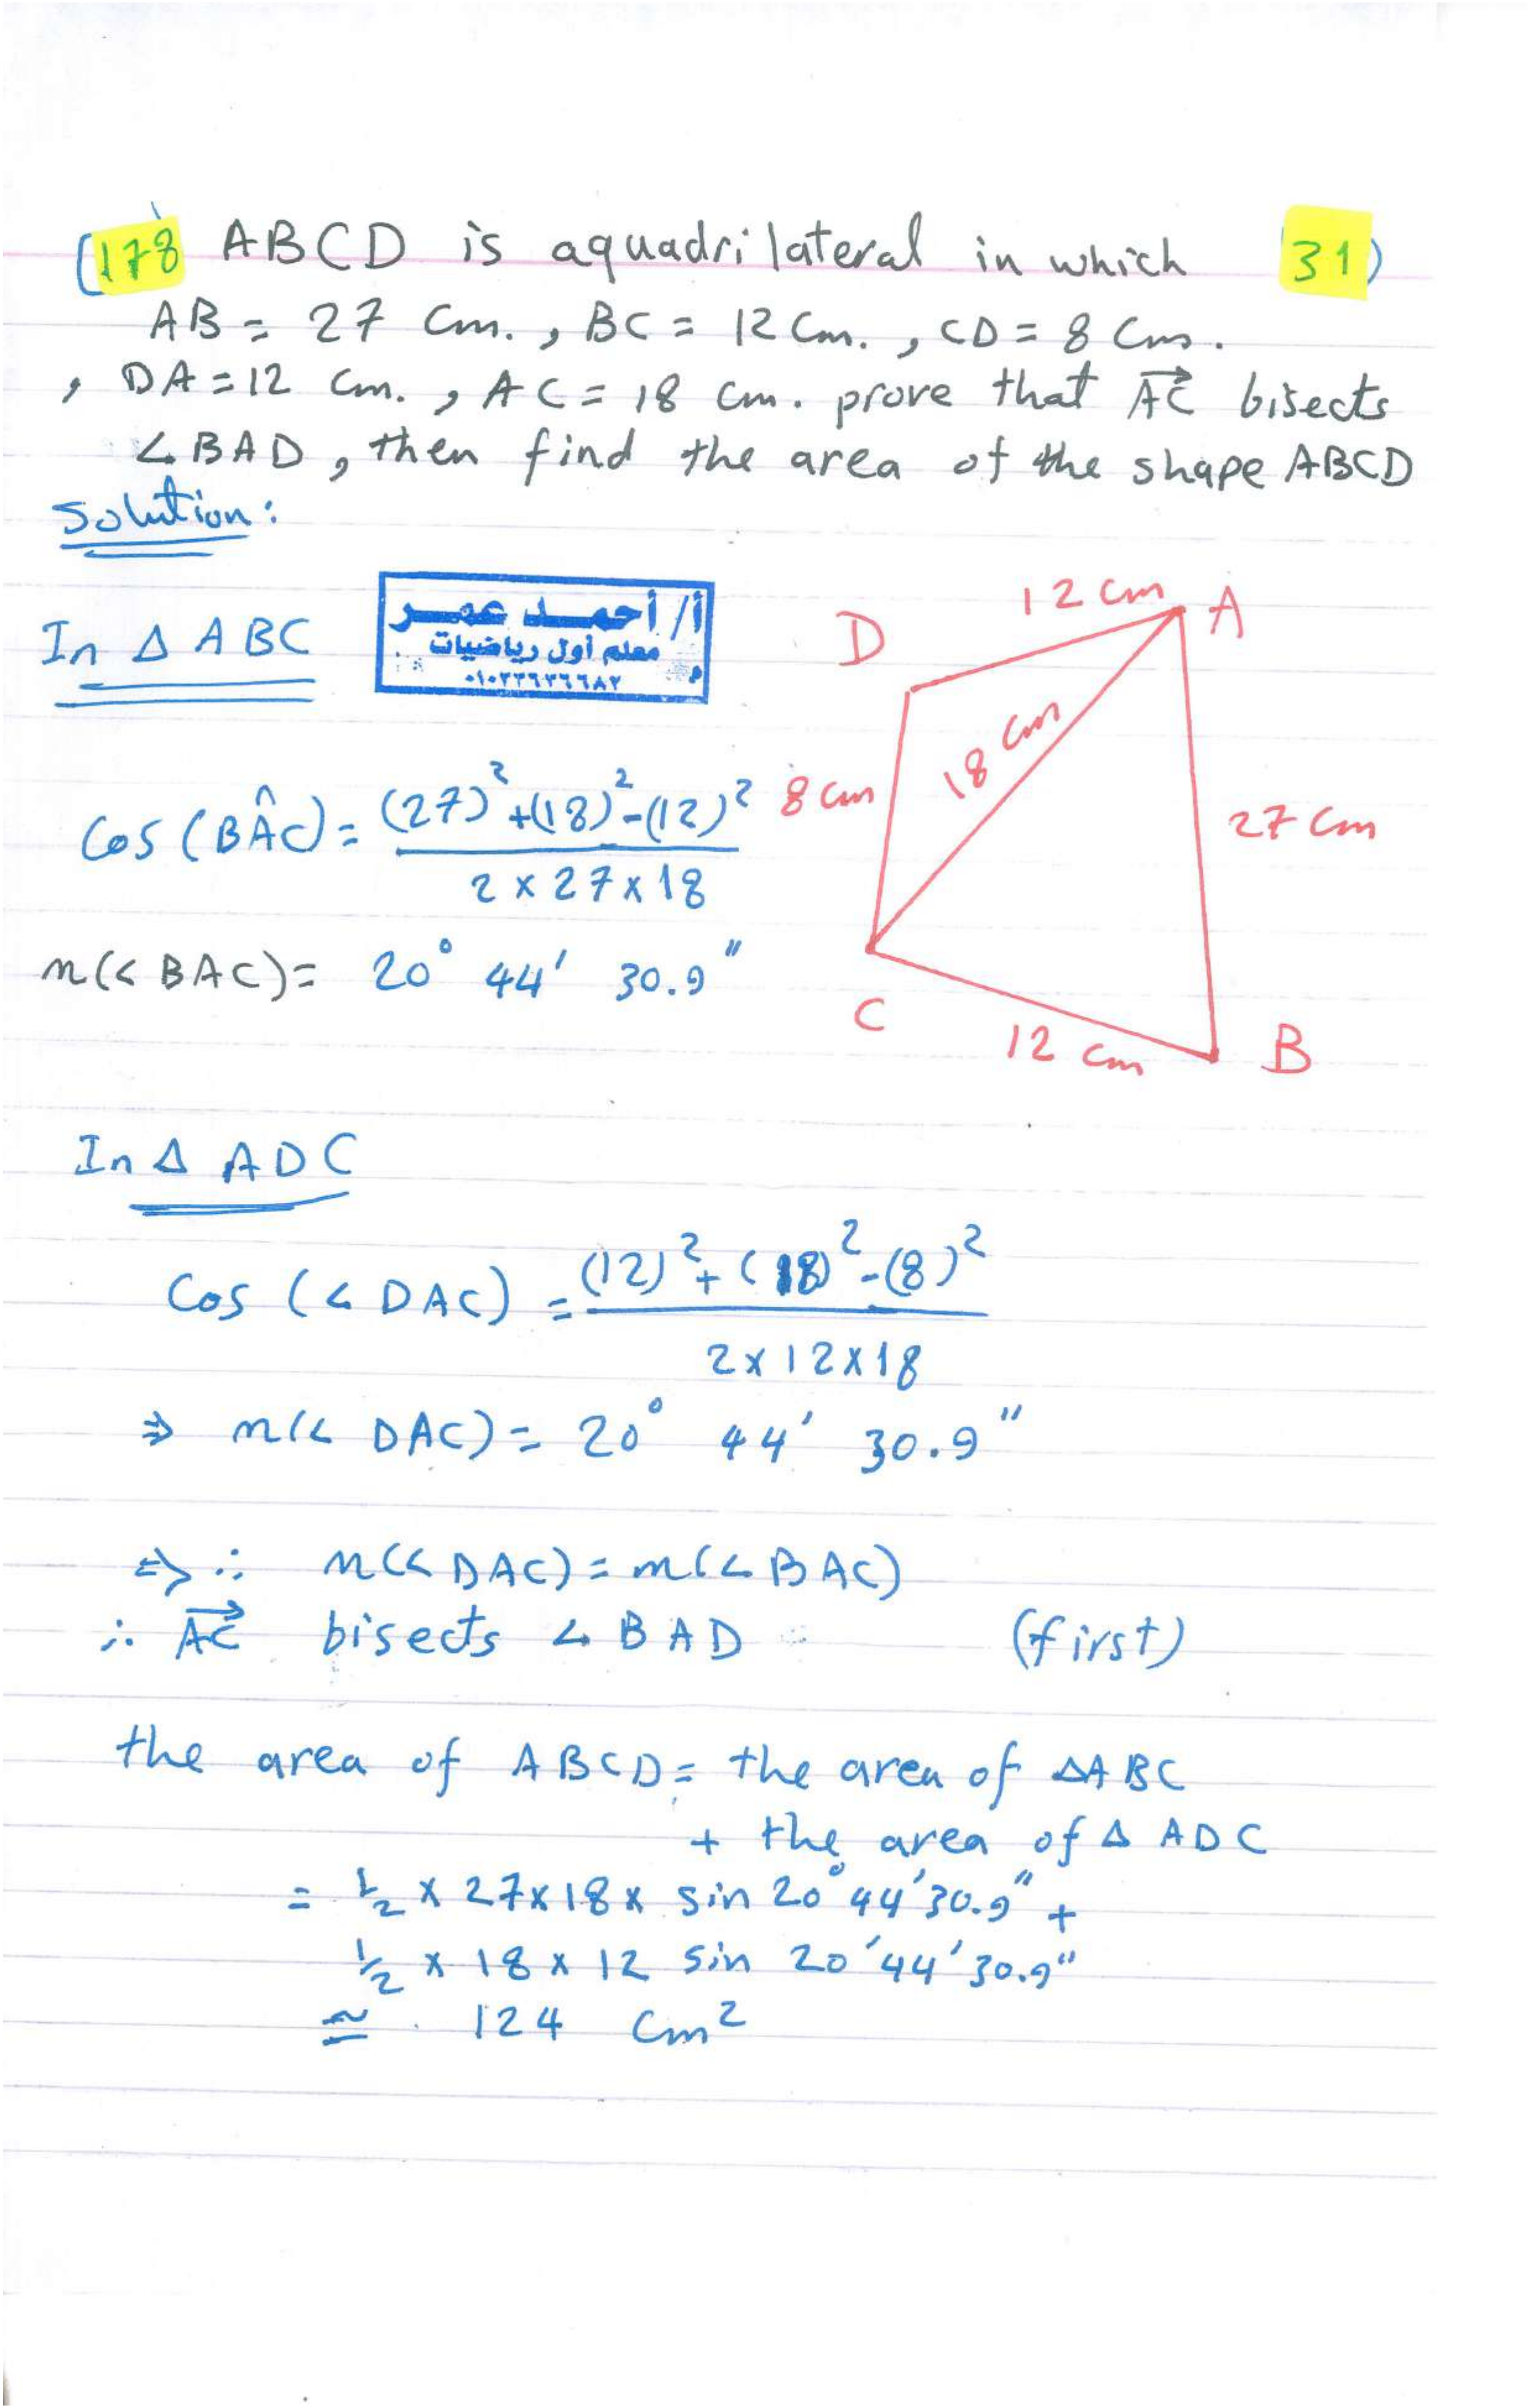 (178 ABCD is aquadrilateral in which 31)
AB = 27 Cm. , BC = 12 Cm. , CD = 8 Cm.
, DA = 12 Cm. , AC = 18 Cm. prove that AC bisects
∠BAD, then find the area of the shape ABCD
Solution:
In Δ ABC
أ/ أحمد عمر
معلم أول رياضيات
٠١٠٢٢٦٢٦٦٨٢
12 cm A
D
18 cm
8 cm
27 cm
C
12 cm B
Cos (BÂC) = (27)² + (18)² - (12)²
2 × 27 × 18
m(< BAC) = 20° 44' 30.9"
In Δ ADC
Cos (∠ DAC) = (12)² + (18)² - (8)²
2 × 12 × 18
⇒ m(∠ DAC) = 20° 44' 30.9"
⇒ ∴ m(< DAC) = m(∠ BAC)
∴ AC bisects ∠ BAD (first)
the area of ABCD = the area of ΔABC
+ the area of Δ ADC
= ½ × 27 × 18 × sin 20° 44' 30.9" +
½ × 18 × 12 sin 20' 44' 30.9"
≅ 124 Cm²